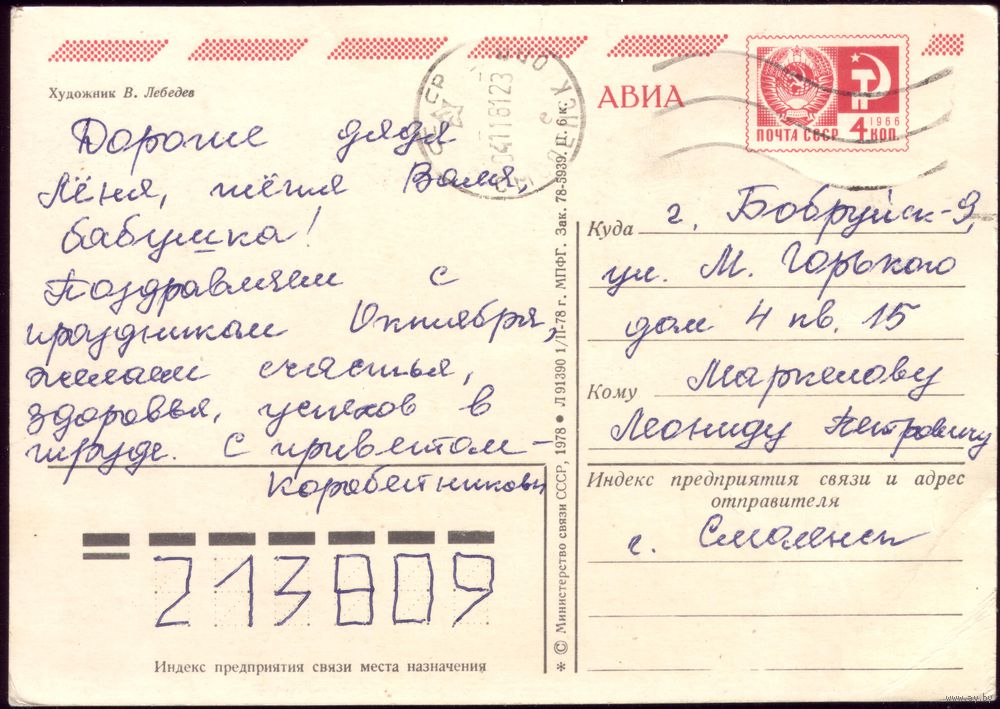 Художник В. Лебедев
Дорогие дядя
Лёня, тётя Валя,
бабушка!
Поздравляем с
праздником Октября,
желаем счастья,
здоровья, успехов в
труде. С приветом –
Коробейниковы
213809
Индекс предприятия связи места назначения
* © Министерство связи СССР, 1978 ● Л 91390 1/II-78 г. МПФГ. Зак. 78-5939. Ц. 6 к.
АВИА
ПОЧТА СССР
1966
4 КОП.
Куда г. Бобруйск-9,
ул. М. Горького
дом 4 кв. 15
Кому Маркелову
Леониду Петровичу
Индекс предприятия связи и адрес
отправителя
г. Смоленск
www.ay.by